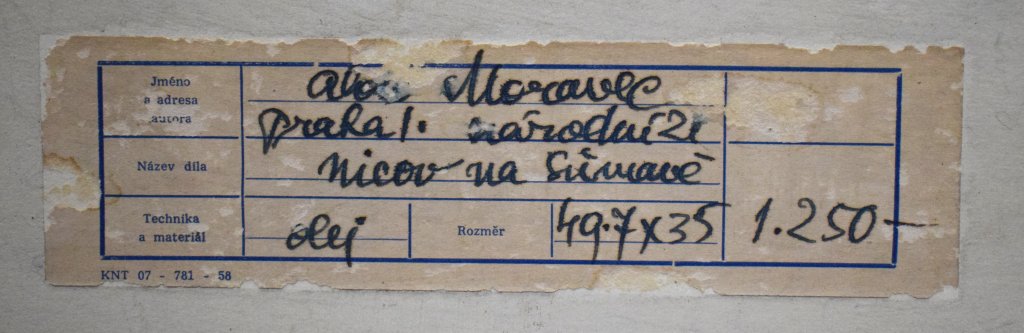 Jméno
a adresa
autora
Moravec
Praha 1. Národní 21
Název díla
Nicov na Šumavě
Technika
a materiál
olej
Rozměr
49.7x35
1.250-
KNT 07 - 781 - 58